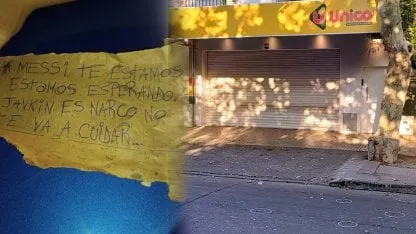 * MESSI TE ESTAMOS
ESTAMOS ESPERANDO.
JAVKIN ES NARCO NO
TE VA A CUIDAR...
Unico